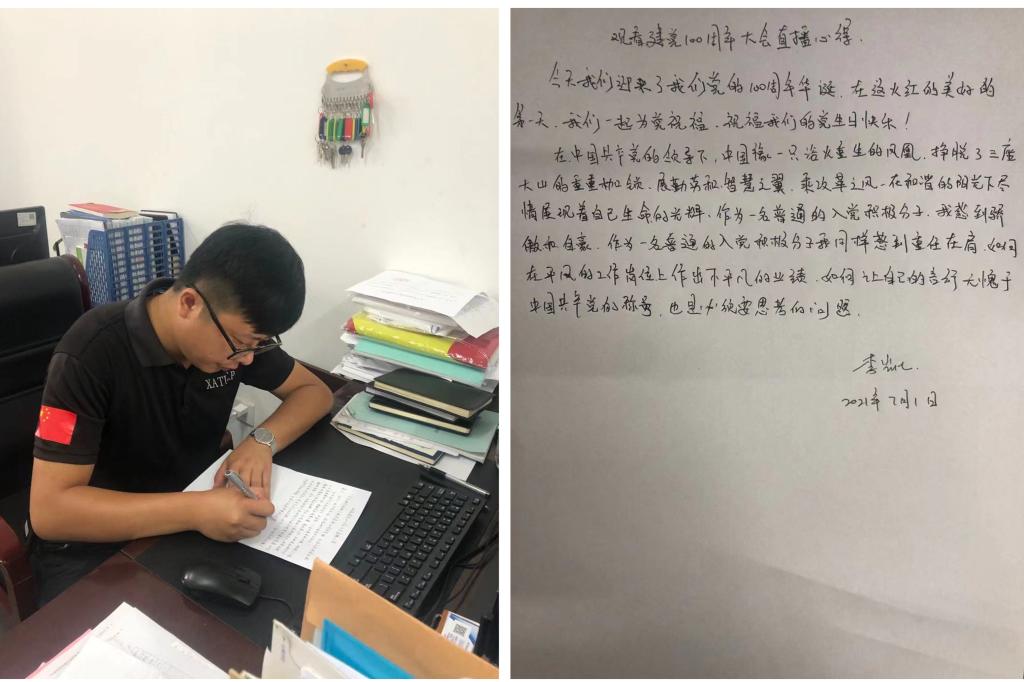 XATLP
观看建党100周年大会直播心得.
今天我们迎来了我们党的100周年华诞.在这火红的美好的
第一天.我们一起为党祝福.祝福我们的党生日快乐!
在中国共产党的领导下,中国像一只浴火重生的凤凰.挣脱了三座
大山的重重枷锁.展勤劳和智慧之翼.乘改革之风.在和谐的阳光下尽
情展现着自己生命的光辉.作为一名普通的入党积极分子.我感到骄
傲和自豪.作为一名普通的入党积极分子我同样感到重任在肩.如何
在平凡的工作岗位上作出不平凡的业绩.如何让自己的言行无愧于
中国共产党的称号.也是必须要思考的问题.
李
2021年7月1日